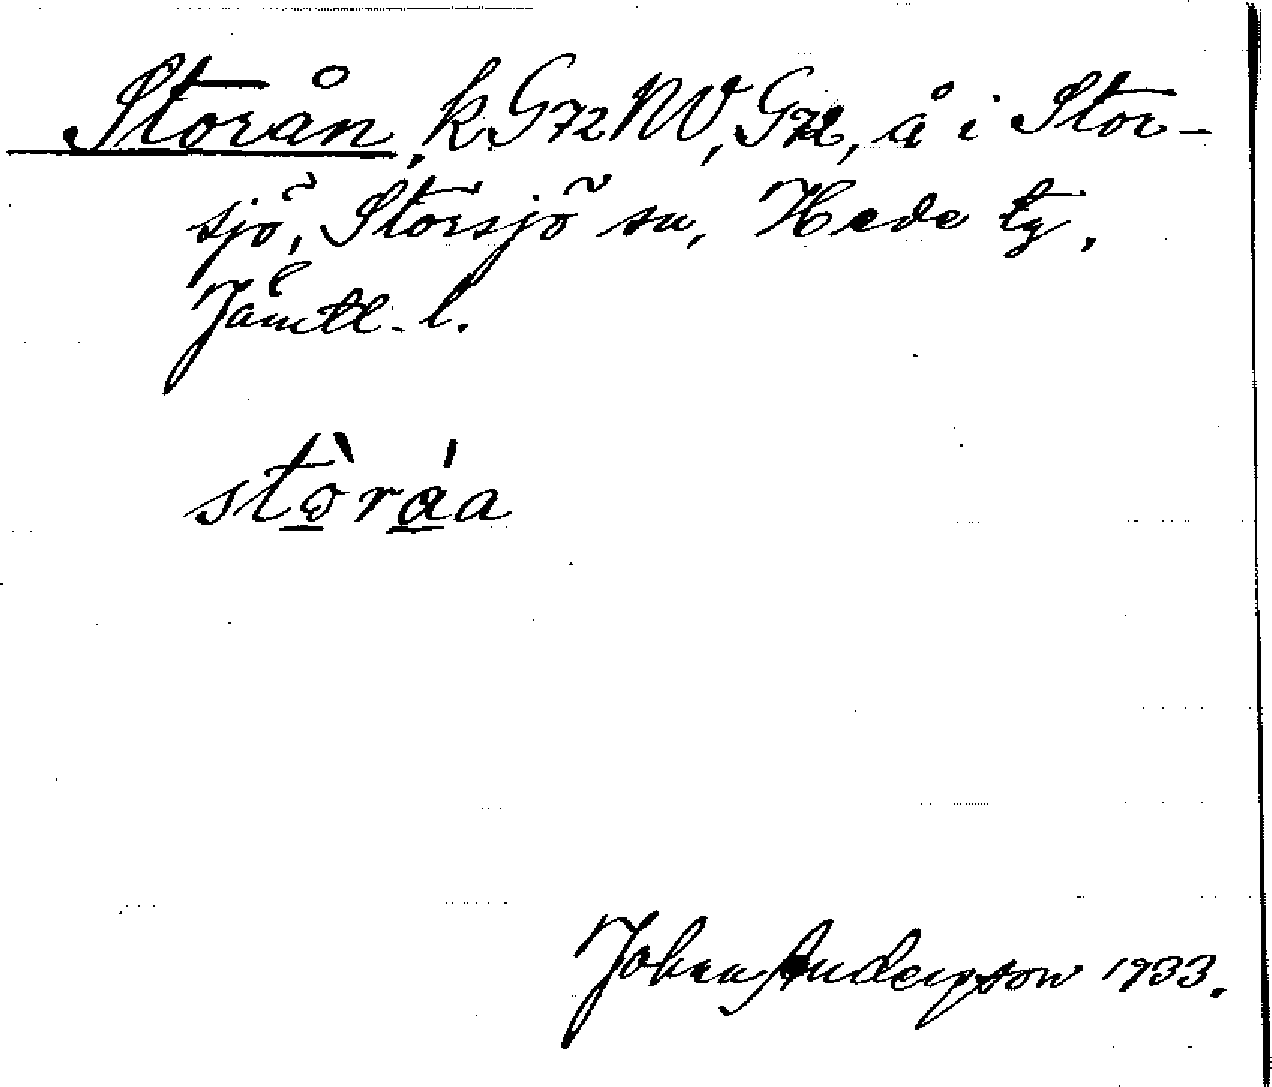 Storån, k G72NV, G72, å i Stor-
sjö, Storsjö sn, Hede tg,
Jämtl. l.
stò̱rá̱a
Johan Anderpson 1933.